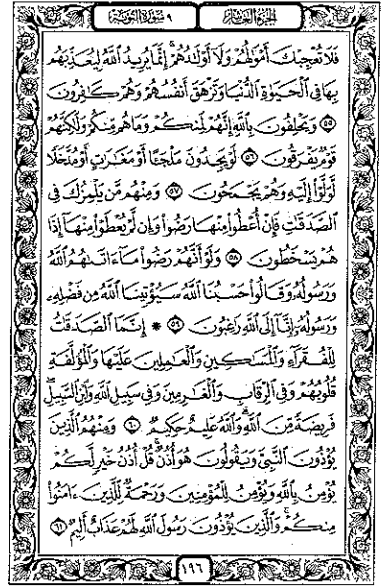 الجزء العاشر
٩ سورة التوبة
فَلَا تُعْجِبْكَ أَمْوَٰلُهُمْ وَلَآ أَوْلَـٰدُهُمْ ۚ إِنَّمَا يُرِيدُ ٱللَّهُ لِيُعَذِّبَهُم
بِهَا فِى ٱلْحَيَوٰةِ ٱلدُّنْيَا وَتَزْهَقَ أَنفُسُهُمْ وَهُمْ كَـٰفِرُونَ
٥٥ وَيَحْلِفُونَ بِٱللَّهِ إِنَّهُمْ لَمِنكُمْ وَمَا هُم مِّنكُمْ وَلَـٰكِنَّهُمْ
قَوْمٌ يَفْرَقُونَ ٥٦ لَوْ يَجِدُونَ مَلْجَـًٔا أَوْ مَغَـٰرَٰتٍ أَوْ مُدَّخَلًا
لَّوَلَّوْا۟ إِلَيْهِ وَهُمْ يَجْمَحُونَ ٥٧ وَمِنْهُم مَّن يَلْمِزُكَ فِى
ٱلصَّدَقَـٰتِ فَإِنْ أُعْطُوا۟ مِنْهَا رَضُوا۟ وَإِن لَّمْ يُعْطَوْا۟ مِنْهَآ إِذَا
هُمْ يَسْخَطُونَ ٥٨ وَلَوْ أَنَّهُمْ رَضُوا۟ مَآ ءَاتَىٰهُمُ ٱللَّهُ
وَرَسُولُهُۥ وَقَالُوا۟ حَسْبُنَا ٱللَّهُ سَيُؤْتِينَا ٱللَّهُ مِن فَضْلِهِۦ
وَرَسُولُهُۥٓ إِنَّآ إِلَى ٱللَّهِ رَٰغِبُونَ ٥٩ * إِنَّمَا ٱلصَّدَقَـٰتُ
لِلْفُقَرَآءِ وَٱلْمَسَـٰكِينِ وَٱلْعَـٰمِلِينَ عَلَيْهَا وَٱلْمُؤَلَّفَةِ
قُلُوبُهُمْ وَفِى ٱلرِّقَابِ وَٱلْغَـٰرِمِينَ وَفِى سَبِيلِ ٱللَّهِ وَٱبْنِ ٱلسَّبِيلِ ۖ
فَرِيضَةً مِّنَ ٱللَّهِ ۗ وَٱللَّهُ عَلِيمٌ حَكِيمٌ ٦٠ وَمِنْهُمُ ٱلَّذِينَ
يُؤْذُونَ ٱلنَّبِىَّ وَيَقُولُونَ هُوَ أُذُنٌ ۚ قُلْ أُذُنُ خَيْرٍ لَّكُمْ
يُؤْمِنُ بِٱللَّهِ وَيُؤْمِنُ لِلْمُؤْمِنِينَ وَرَحْمَةٌ لِّلَّذِينَ ءَامَنُوا۟
مِنكُمْ ۚ وَٱلَّذِينَ يُؤْذُونَ رَسُولَ ٱللَّهِ لَهُمْ عَذَابٌ أَلِيمٌ ٦١
١٩٦